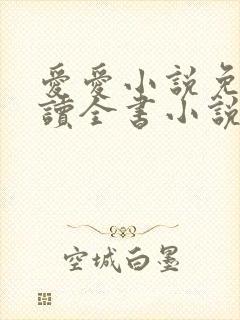 愛愛小說免
讀全書小說
空城白墨